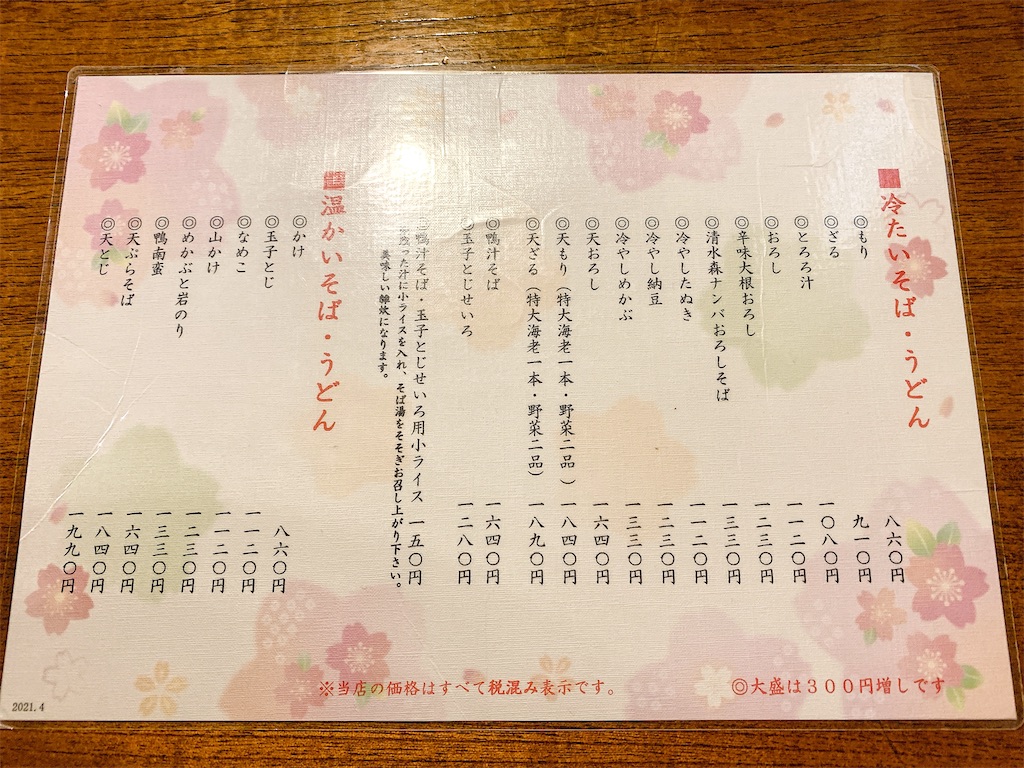 ■冷たいそば・うどん
◎もり 八六〇円
◎ざる 九一〇円
◎とろろ汁 一〇八〇円
◎おろし 一一二〇円
◎辛味大根おろし 一二三〇円
◎清水森ナンバおろしそば 一三三〇円
◎冷やしたぬき 一一二〇円
◎冷やし納豆 一二三〇円
◎冷やしめかぶ 一三三〇円
◎天おろし 一六四〇円
◎天もり（特大海老一本・野菜二品 ） 一八四〇円
◎天ざる（特大海老一本・野菜二品） 一八九〇円
◎鴨汁そば 一六四〇円
◎玉子とじせいろ 一二八〇円
◎鴨汁そば・玉子とじせいろ用小ライス 一五〇円
※残った汁に小ライスを入れ、そば湯をそそぎお召し上がり下さい。
美味しい雑炊になります。
■温かいそば・うどん
◎かけ 八六〇円
◎玉子とじ 一一二〇円
◎なめこ 一一二〇円
◎山かけ 一二三〇円
◎めかぶと岩のり 一三三〇円
◎鴨南蛮 一六四〇円
◎天ぷらそば 一八四〇円
◎天とじ 一九九〇円
◎大盛は３００円増しです
※当店の価格はすべて税混み表示です。
2021.4